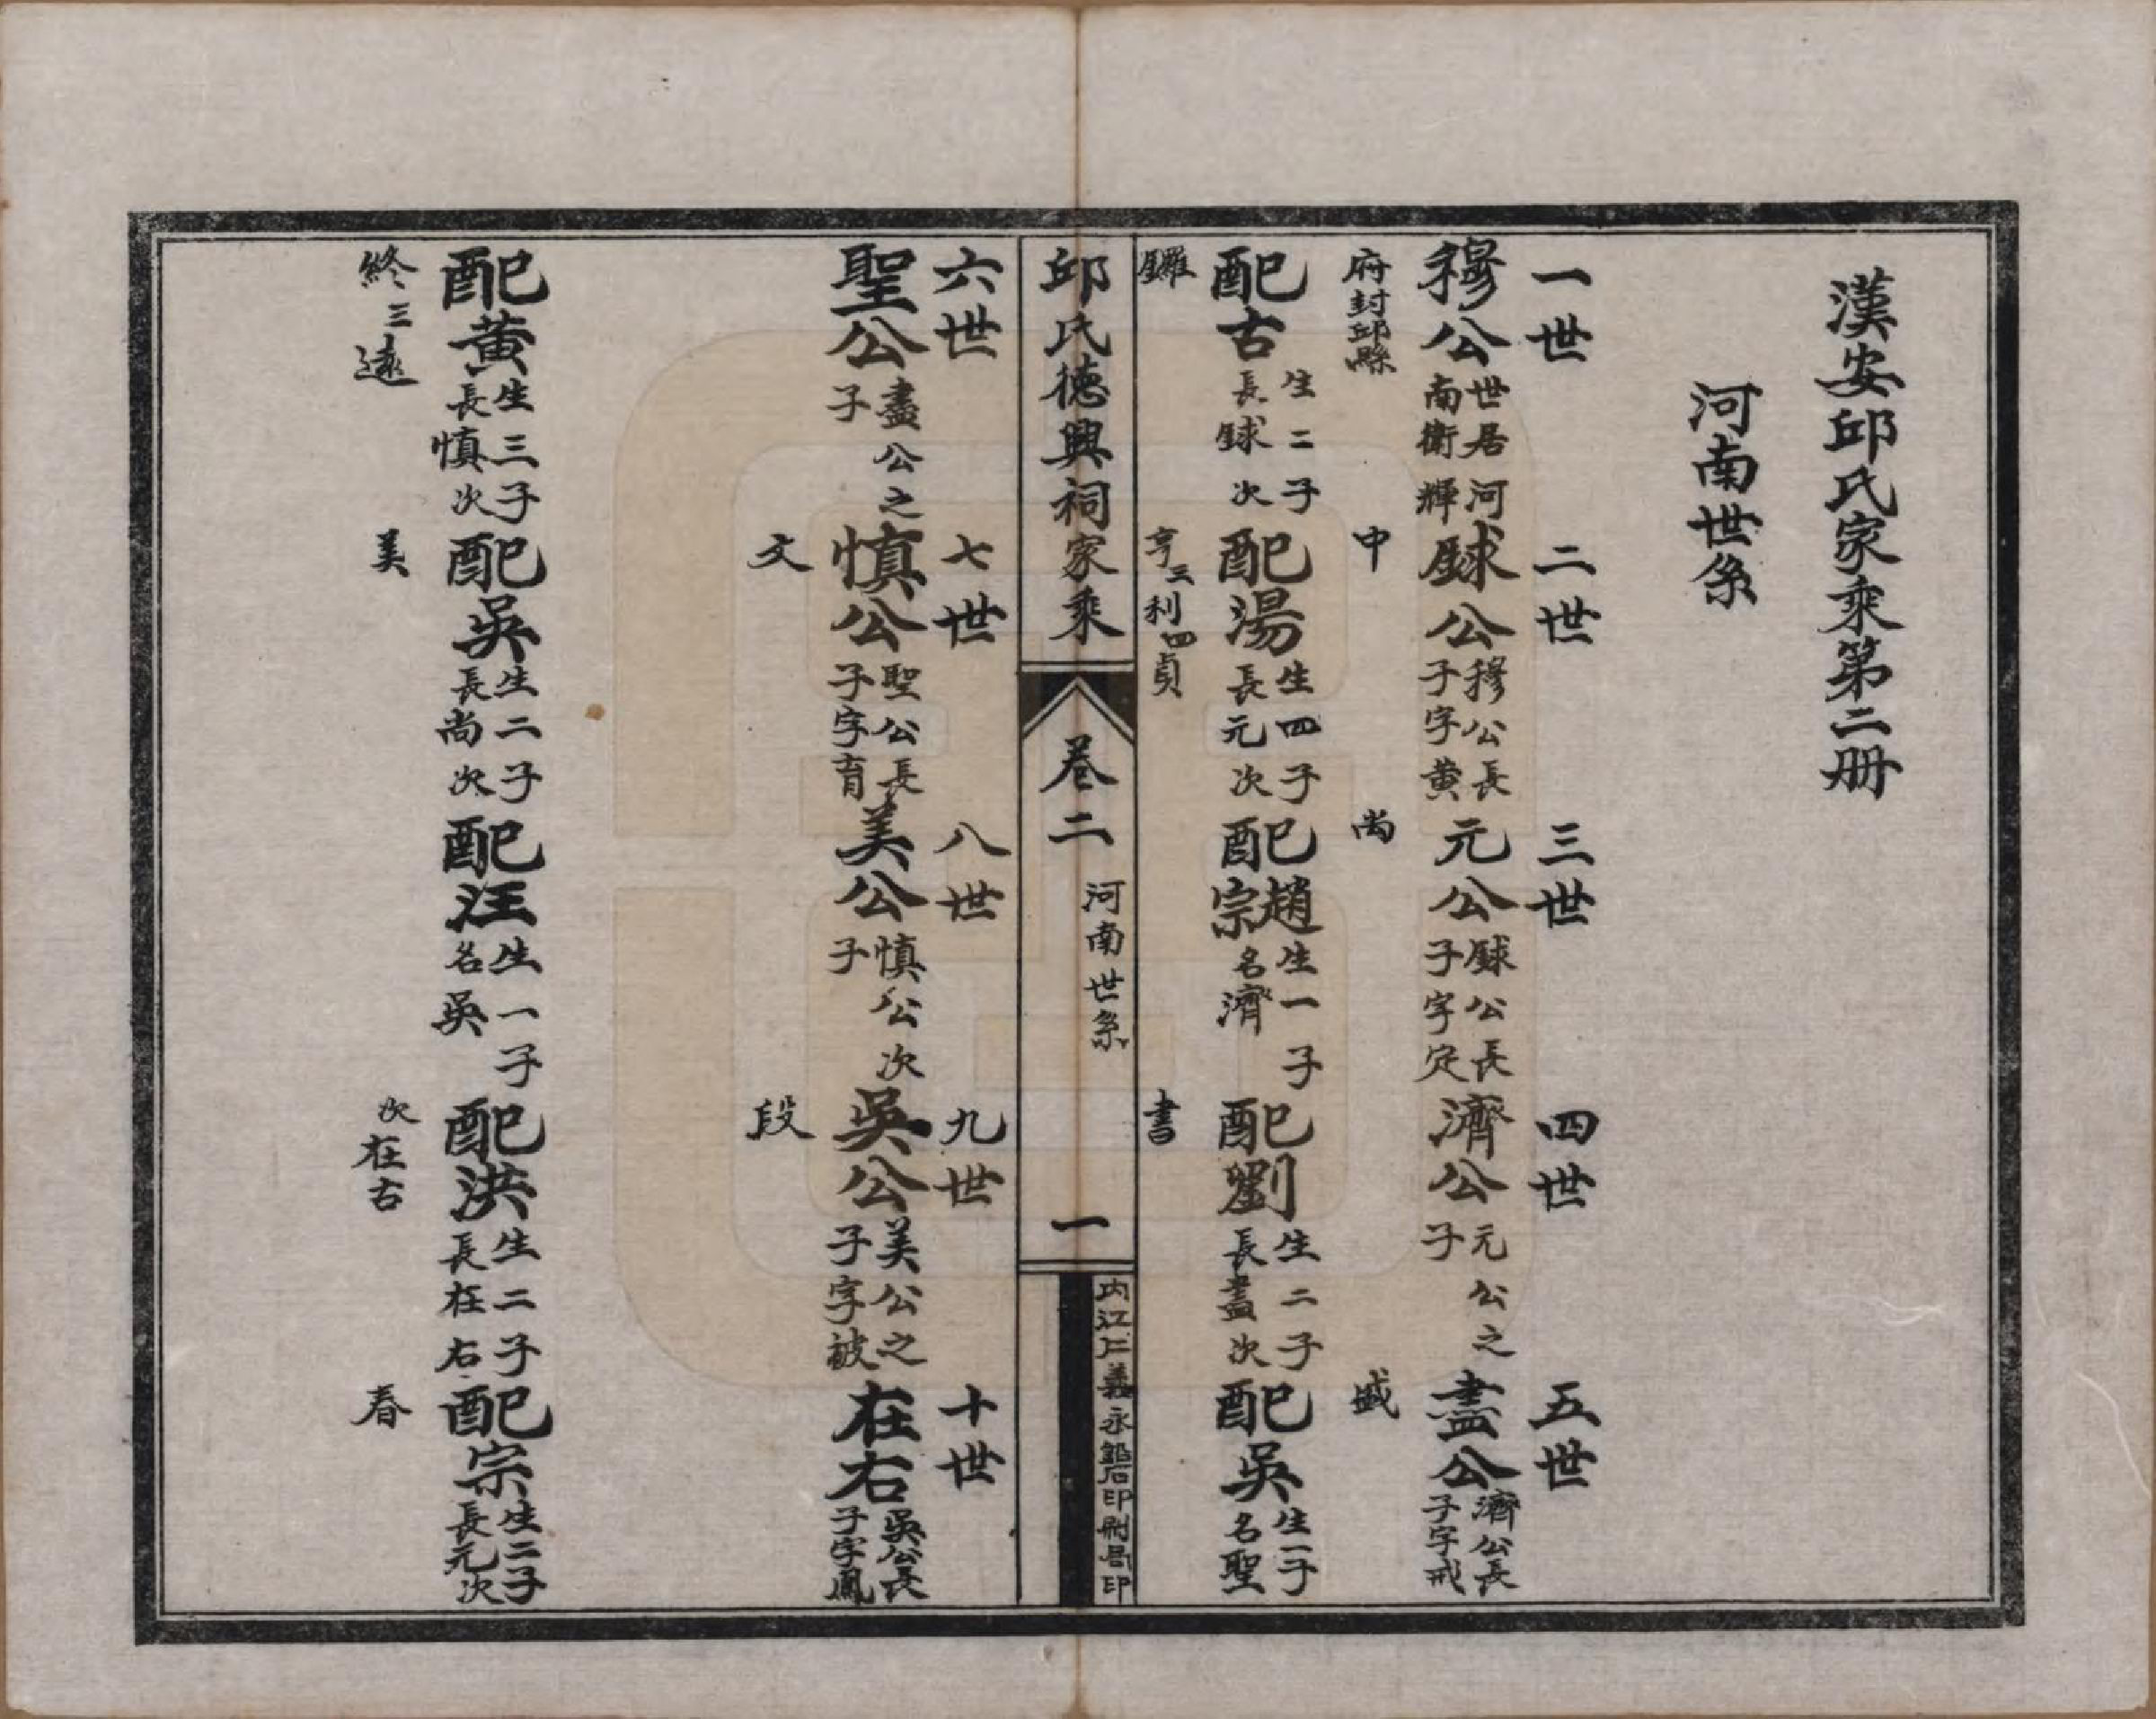 漢安邱氏家乘第二册
河南世系
一世
穆公世居河南衛輝府封邱縣
配古生二子長銶次鑼
二世
銶公穆公長子字黄中
配湯生四子長元次亨三利四貞
三世
元公銶公長子字定尚
配趙宗生一子名濟
四世
濟公元公之子
配劉生二子長盡次書
五世
盡公濟公長子字戒盛
配吳生一子名聖
邱氏德興祠家乘
卷二
河南世系
一
内江仁義永鉛石印刷局印
六世
聖公盡公之子
配黄生三子長慎次終三遠
七世
慎公聖公長子字育文
配吳生二子長尚次美
八世
美公慎公次子
配汪生一子名吳
九世
吳公美公之子字被段
配洪生二子長在右次在古
十世
在右吳公長子字鳳
配宗生二子長元次春